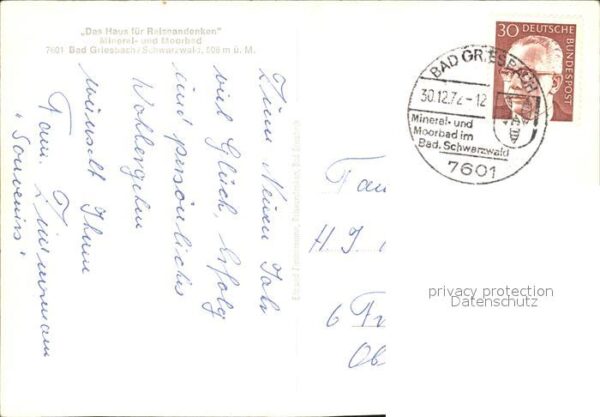 „Das Haus für Reiseandenken"
Mineral- und Moorbad
7601 Bad Griesbach/Schwarzwald, 506 m ü. M.
Zum Neuen Jahr
viel Glück, Erfolg
und persönliches
Wohlergehen
wünscht Ihnen
Fam. Zimmermann
"Souvenirs"
30 DEUTSCHE
BUNDESPOST
BAD GRIESBACH
30.12.72-12
Mineral- und
Moorbad im
Bad. Schwarzwald
7601
Fam
H. J
6 Fr
Ob
privacy protection
Datenschutz